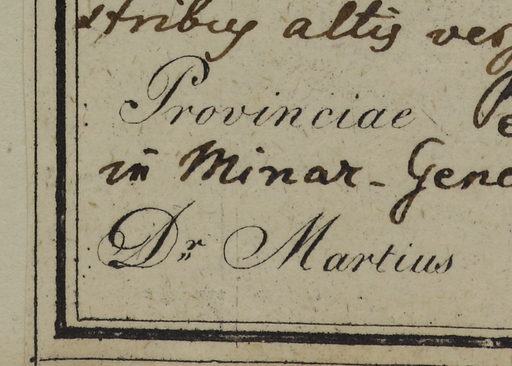 stribus altis
Provinciae
in Minar-Gene
Dr Martius